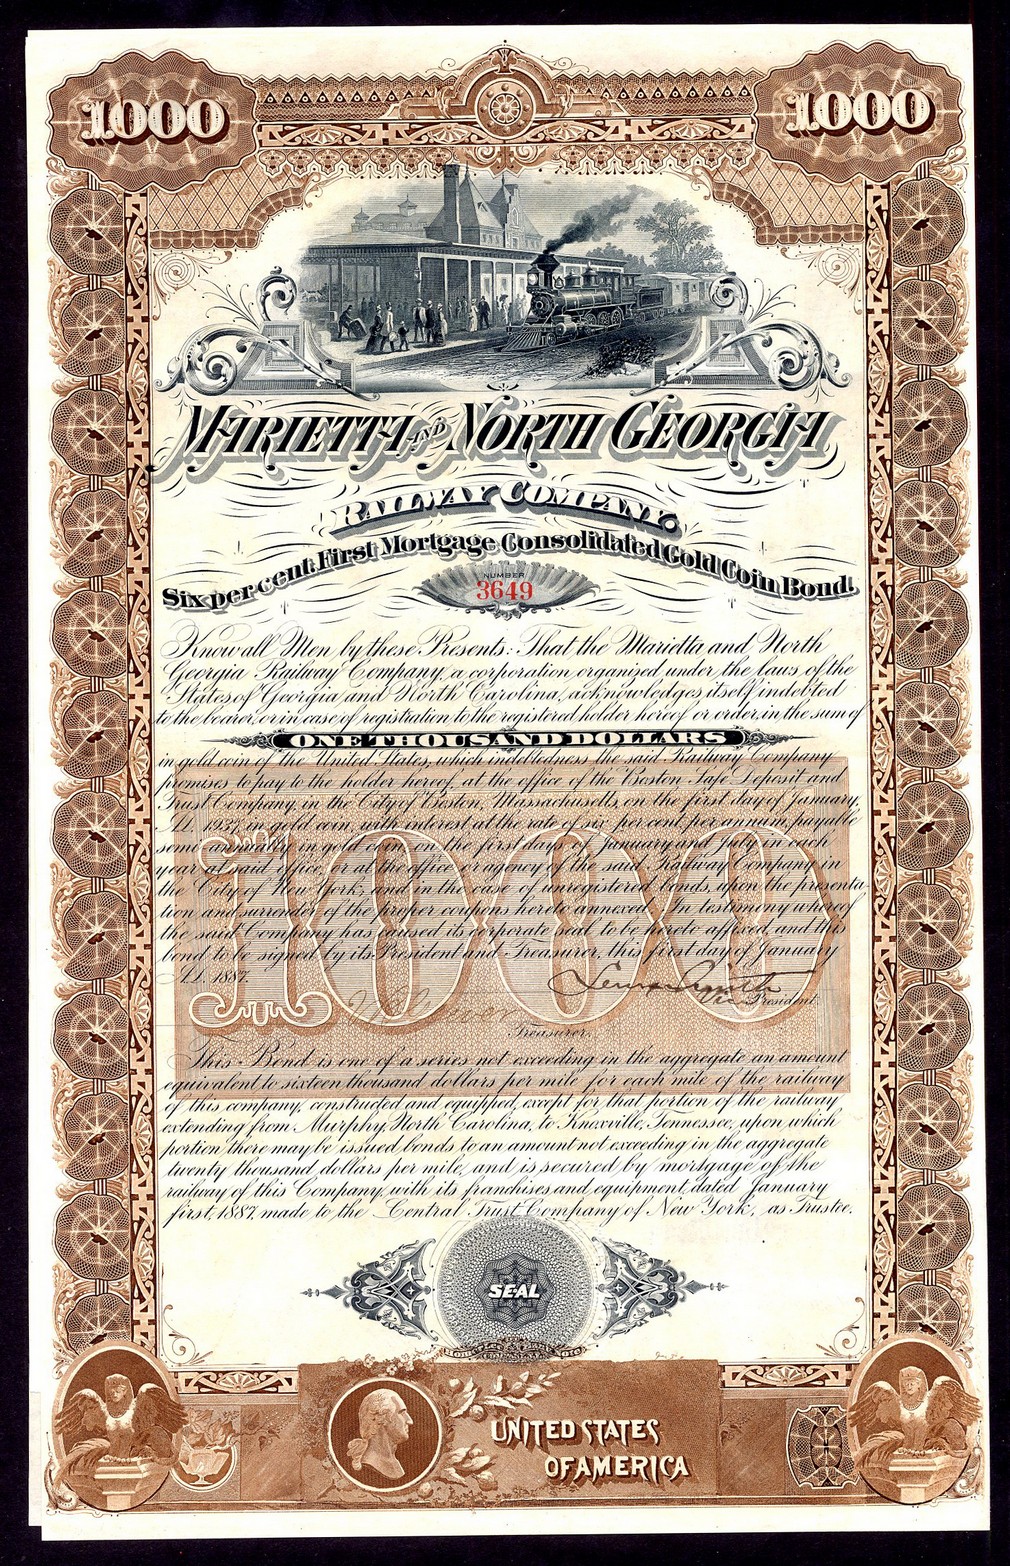 1000 1000
MARIETTA AND NORTH GEORGIA
RAILWAY COMPANY.
Six per cent First Mortgage Consolidated Gold Coin Bond.
NUMBER
3649
Know all Men by these Presents: That the Marietta and North
Georgia Railway Company, a corporation organized under the laws of the
States of Georgia and North Carolina, acknowledges itself indebted
to the bearer, or in case of registration to the registered holder hereof or order, in the sum of
ONE THOUSAND DOLLARS
in gold coin of the United States, which indebtedness the said Railway Company
promises to pay to the holder hereof, at the office of the Boston Safe Deposit and
Trust Company, in the City of Boston, Massachusetts, on the first day of January,
A.D. 1937, in gold coin, with interest at the rate of six per cent. per annum, payable
semi-annually in gold coin on the first days of January and July in each
year at said office, or at the office or agency of the said Railway Company in
the City of New York, and in the case of unregistered bonds, upon the presenta-
tion and surrender of the proper coupons hereto annexed. In testimony whereof
the said Company has caused its corporate seal to be hereto affixed, and this
bond to be signed by its President and Treasurer, this first day of January
A.D. 1887.
Vice President.
Treasurer.
1000
This Bond is one of a series not exceeding in the aggregate an amount
equivalent to sixteen thousand dollars per mile for each mile of the railway
of this company, constructed and equipped, except for that portion of the railway
extending from Murphy, North Carolina, to Knoxville, Tennessee, upon which
portion there may be issued bonds to an amount not exceeding in the aggregate
twenty thousand dollars per mile, and is secured by mortgage of the
railway of this Company, with its franchises and equipment, dated January
first, 1887, made to the Central Trust Company of New York, as Trustee.
SEAL
UNITED STATES
OF AMERICA